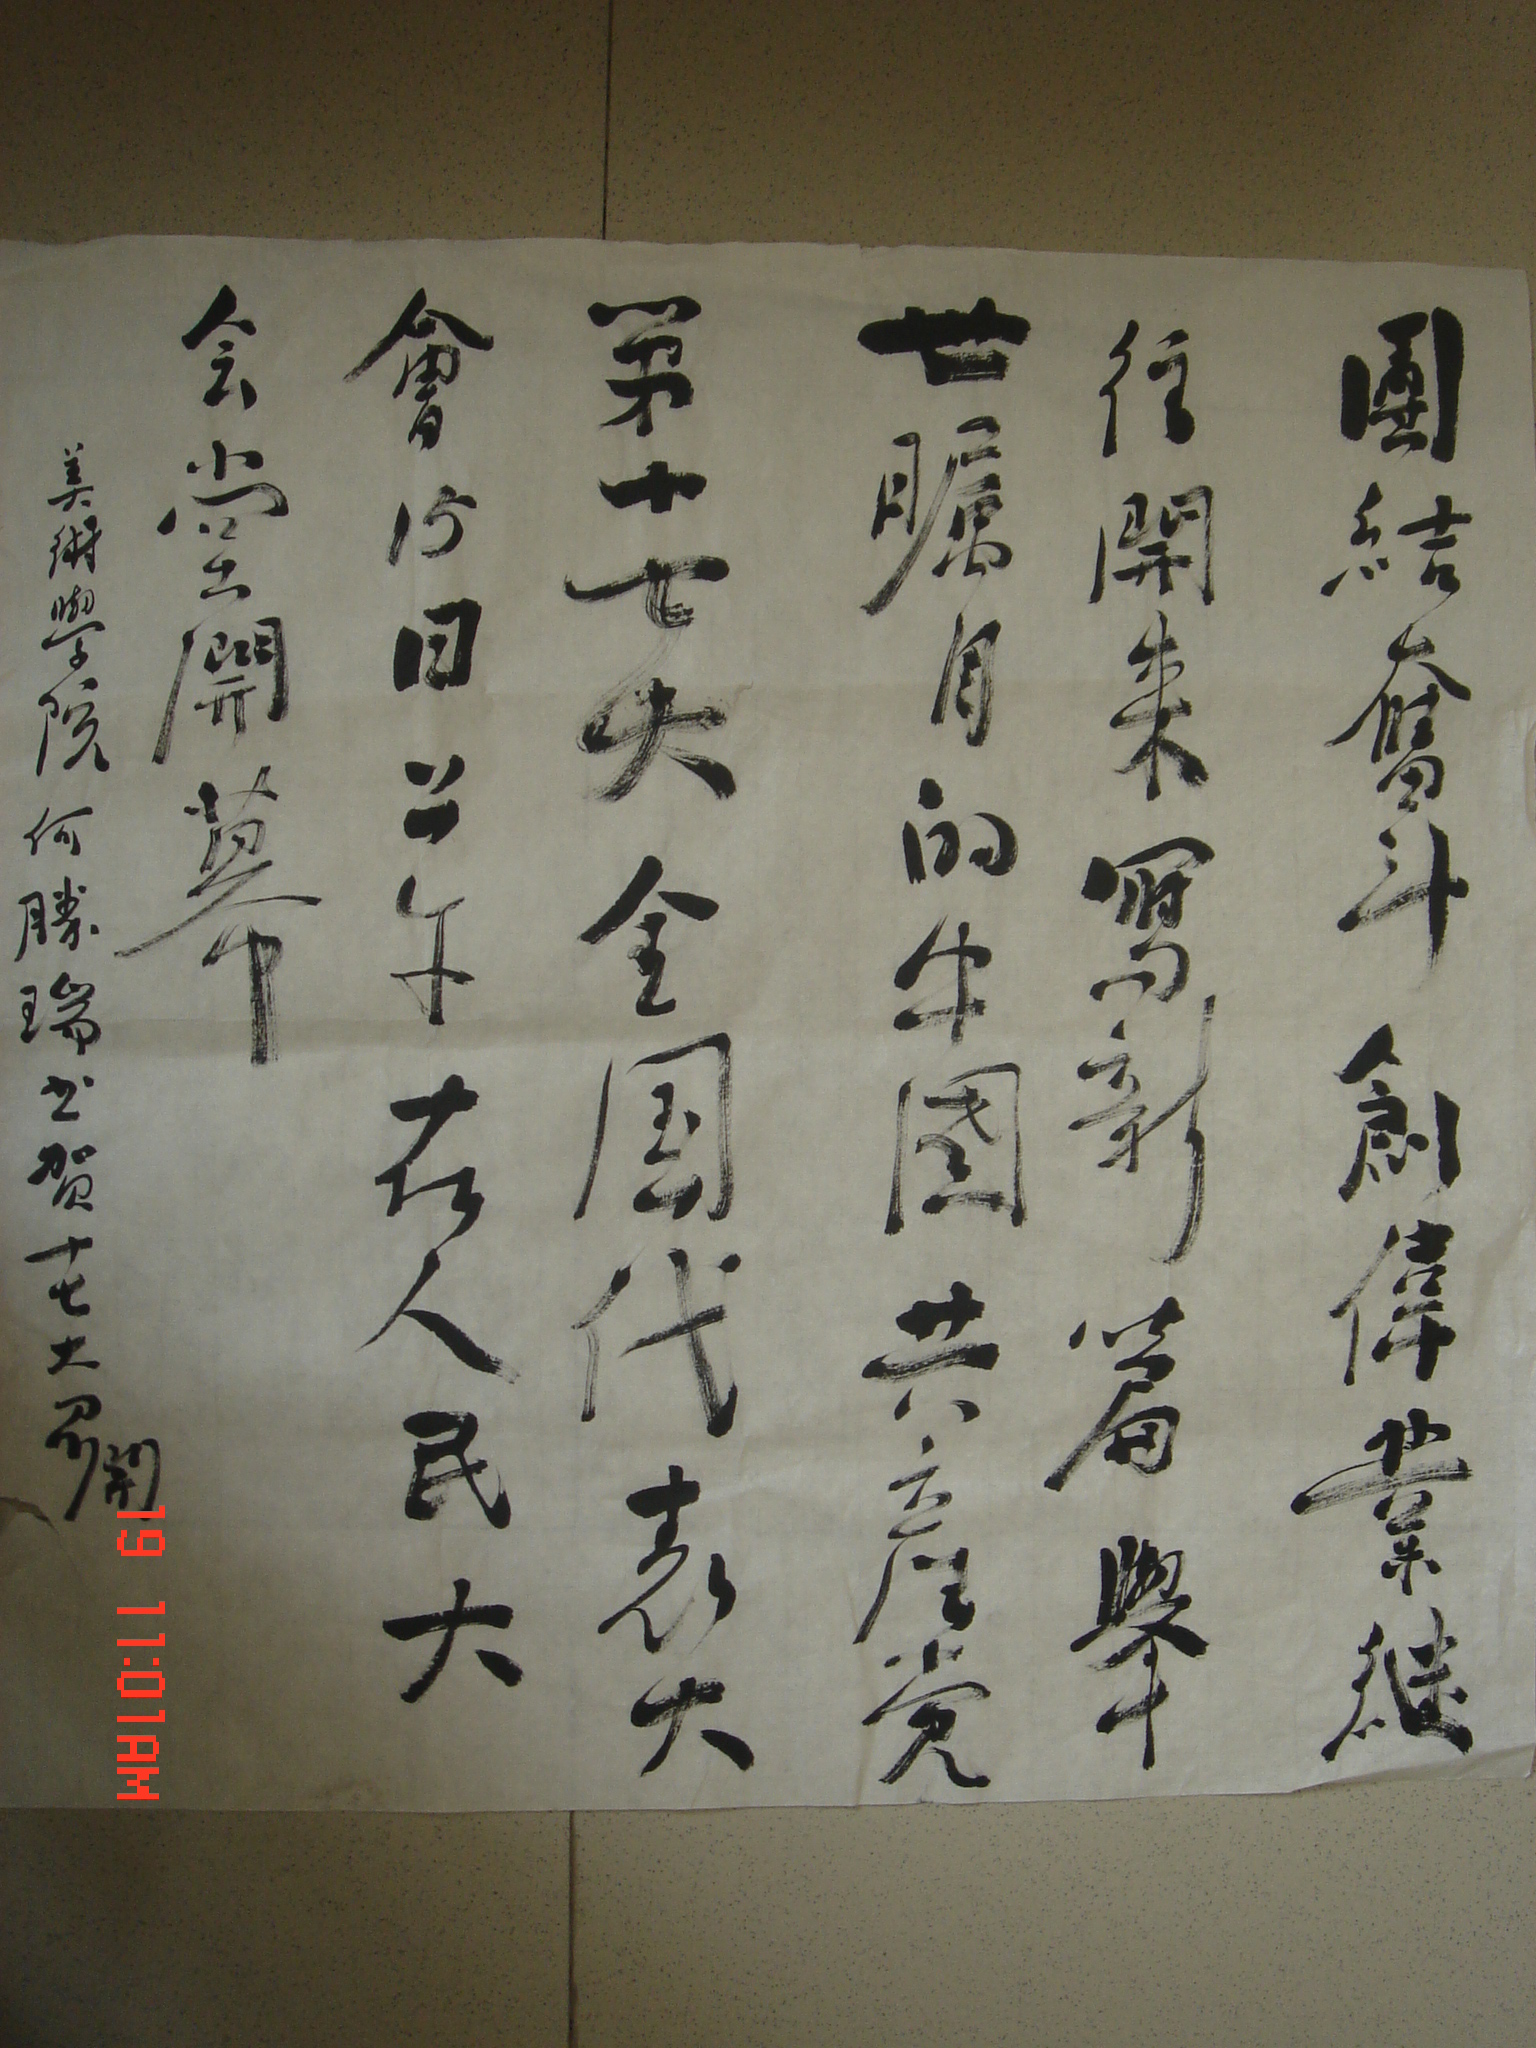 團結奮斗創偉業継
往開来寫新篇舉
世矚目的中國共產党
第十七大全国代表大
會15日上午在人民大
会堂開幕
美術學院何勝瑞书贺十七大召開
19 11:01AM